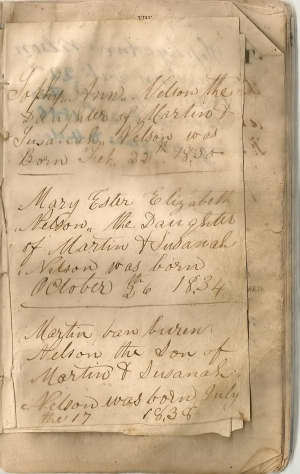 Ann Nelson the
Daughter of Martin &
Susanah Nelson was
Born Feb. 22
Mary Ester Elizabeth
Nelson, the Daughter
of Martin & Susanah
Nelson was born
October 1834
Martin van buren
Nelson the Son of
Martin & Susanah
Nelson was born July
the 17 1838